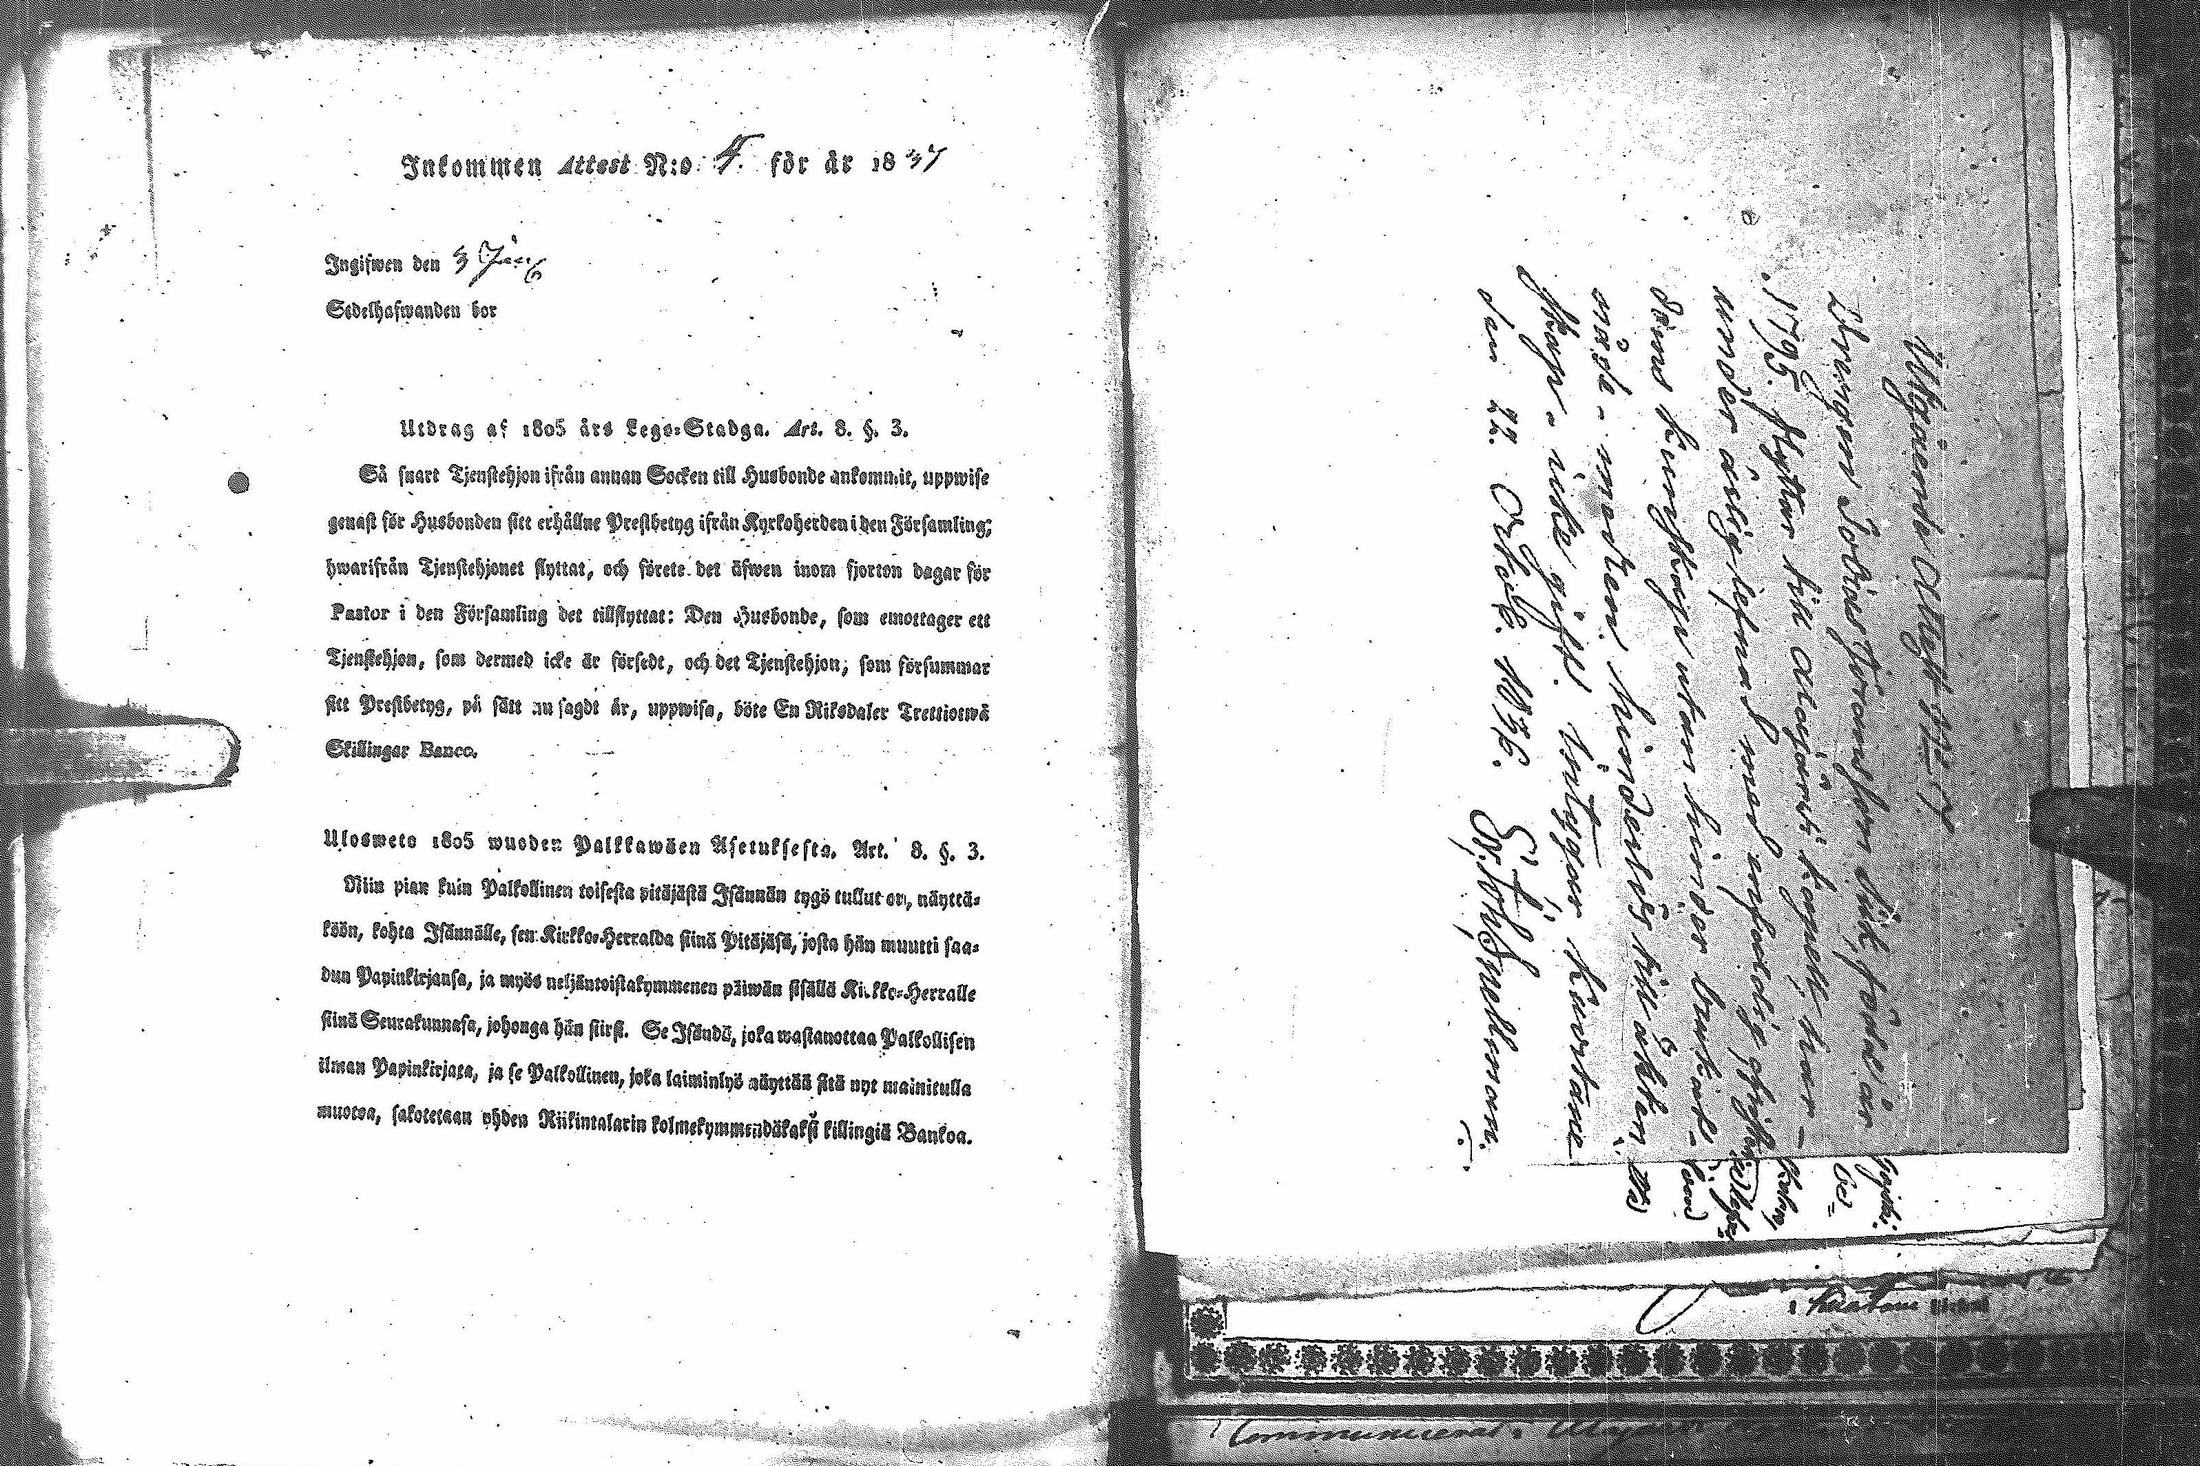 Inkommen Attest N:o 4. för år 1837
Ingifwen den 3 Jan
Sedelhafwanden bor
Utdrag af 1805 års Lego-Stadga. Art. 8. §. 3.
Så snart Tjenstehjon ifrån annan Socken till Husbonde ankommit, uppwise
genast för Husbonden sitt erhållne Prestbetyg ifrån Kyrkoherden i den Församling;
hwarifrån Tjenstehjonet flyttat, och förete det äfwen inom fjorton dagar för
Pastor i den Församling det tillflyttat: Den Husbonde, som emottager ett
Tjenstehjon, som dermed icke är försedt, och det Tjenstehjon, som försummar
sitt Prestbetyg, på sätt nu sagdt är, uppwisa, böte En Riksdaler Trettiotwå
Skillingar Banco.
Ulosweto 1805 wuoden Palkkawäen Asetuksesta. Art. 8. §. 3.
Niin pian kuin Palkollinen toisesta pitäjästä Isännän tygö tullut on, näyttä-
köön, kohta Isännälle, sen Kirkko-Herralda siinä Pitäjäsä, josta hän muutti saa-
dun Papinkirjansa, ja myös neljäntoistakymmenen päiwän sisällä Kirkko-Herralle
siinä Seurakunnasa, johonga hän siirsi. Se Isändä, joka wastanottaa Palkollisen
ilman Papinkirjata, ja se Palkollinen, joka laiminlyö näyttää sitä nyt mainitulla
muotoa, sakotetaan yhden Riikintalarin kolmekymmendäkaksi killingiä Bankoa.
Utgående Attest N:o 7
Drengen Tobias född år
1795. flyttar till Alajärvi kapell, har
under ärlig lefnad med
döms kunskap utan hinder
måste - modern hinderlös till äkten
skap - icke gift. intygar Kuortane
den 22 Octob. 1836. Snellman.
Kuortane
Communicerat